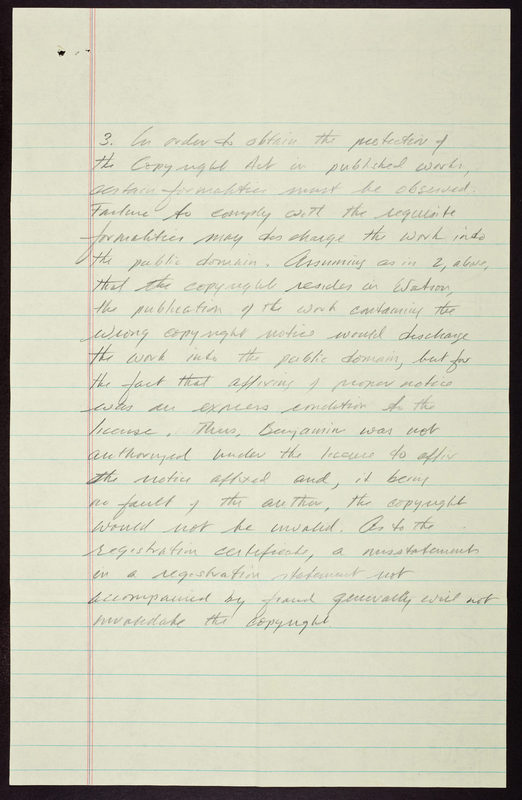 3. In order to obtain the protection of
the Copyright Act in published works,
certain formalities must be observed.
Failure to comply with the requisite
formalities may discharge the work into
the public domain. Assuming as in 2, above,
that the copyright resides in Watson,
the publication of the work containing the
wrong copyright notice would discharge
the work into the public domain, but for
the fact that affixing of proper notice
was an express condition to the
license. Thus, Benjamin was not
authorized under the license to affix
the notice affixed and, it being
no fault of the author, the copyright
would not be invalid. As to the
registration certificate, a misstatement
in a registration statement not
accompanied by fraud generally will not
invalidate the copyright.